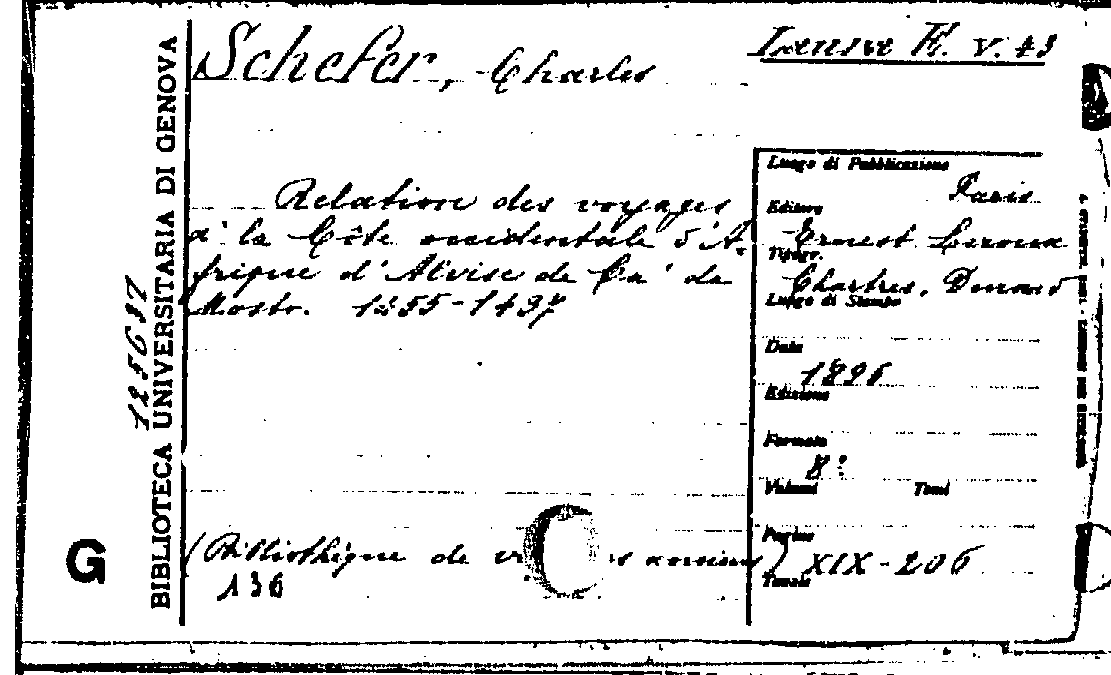 Schefer, Charles
Laura E. V. 43
Relation des voyages
à la Côte occidentale d'A-
frique d'Alvise de Ca' da
Mosto. 1455-1457
(Bibliothèque de v es anciens)
136
Luogo di Pubblicazione
Paris
Editore
Ernest Leroux
Tipogr.
Chartres, Durand
Luogo di Stampa
Data
1895
Edizione
Formato
8°
Volumi Tomi
Pagine
XIX-206
Totale
BIBLIOTECA UNIVERSITARIA DI GENOVA
125637
G